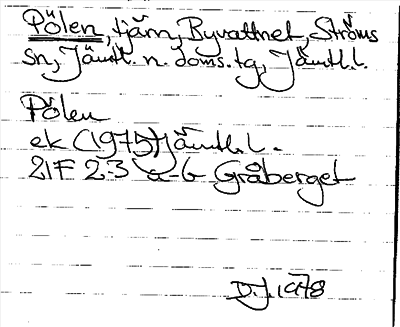 Pölen, tjärn, Byvattnet, Ströms
sn, Jämtl. n. doms. tg, Jämtl. l.
Pölen
ek (1975) Jämtl. l.
21F 2-3 a-b Gråberget
D.J. 1978